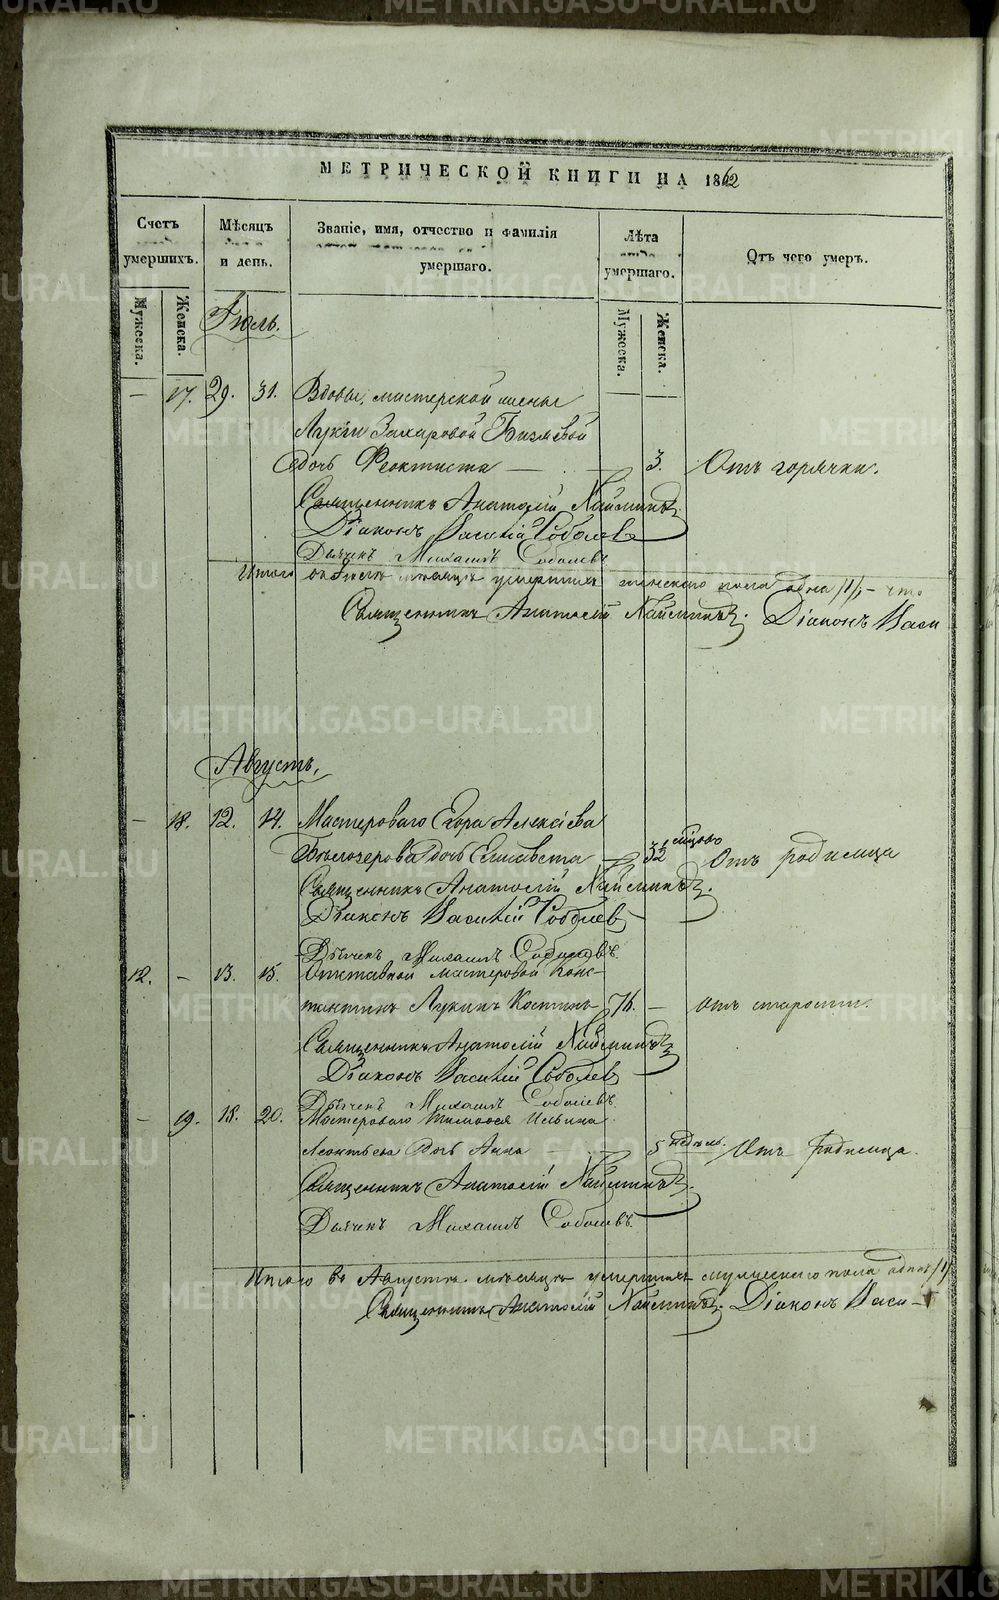 МЕТРИЧЕСКОЙ КНИГИ НА 1862
Счетъ умершихъ.
Мѣсяцъ и день.
Званіе, имя, отчество и фамилія умершаго.
Лѣта умершаго.
Отъ чего умеръ.
Мужеска.
Женска.
Мужеска.
Женска.
Іюль.
— 17. 29. 31. Вдовы, мастерской жены
Лукіи Захаровой
дочь Феоктиста — 3. Отъ горячки.
Священникъ Анатолій
Діаконъ Василій Соболевъ
Дьячекъ Михаилъ Соболевъ
Итого въ Іюлѣ мѣсяцѣ умершихъ женскаго пола одна /1/ — что
Священникъ Анатолій Діаконъ Васи
Августъ.
— 18. 12. 14. Мастероваго Егора Алексѣева
Бѣлозерова дочь Елисавета — Отъ родимца
Священникъ Анатолій
Діаконъ Василій Соболевъ
Дьячекъ Михаилъ Соболевъ
12. — 13. 15. Отставной мастеровой Конс-
тантинъ Лукинъ Костинъ 76. — Отъ старости.
Священникъ Анатолій
Діаконъ Василій Соболевъ
Дьячекъ Михаилъ Соболевъ
— 19. 18. 20. Мастероваго Тимофея Ильина
Леонтьева дочь Анна — 5 недѣль. Отъ родимца.
Священникъ Анатолій
Дьячекъ Михаилъ Соболевъ
Итого въ Августѣ мѣсяцѣ умершихъ мужескаго пола одинъ /1/
Священникъ Анатолій Діаконъ Васи-
METRIKI.GASO-URAL.RU